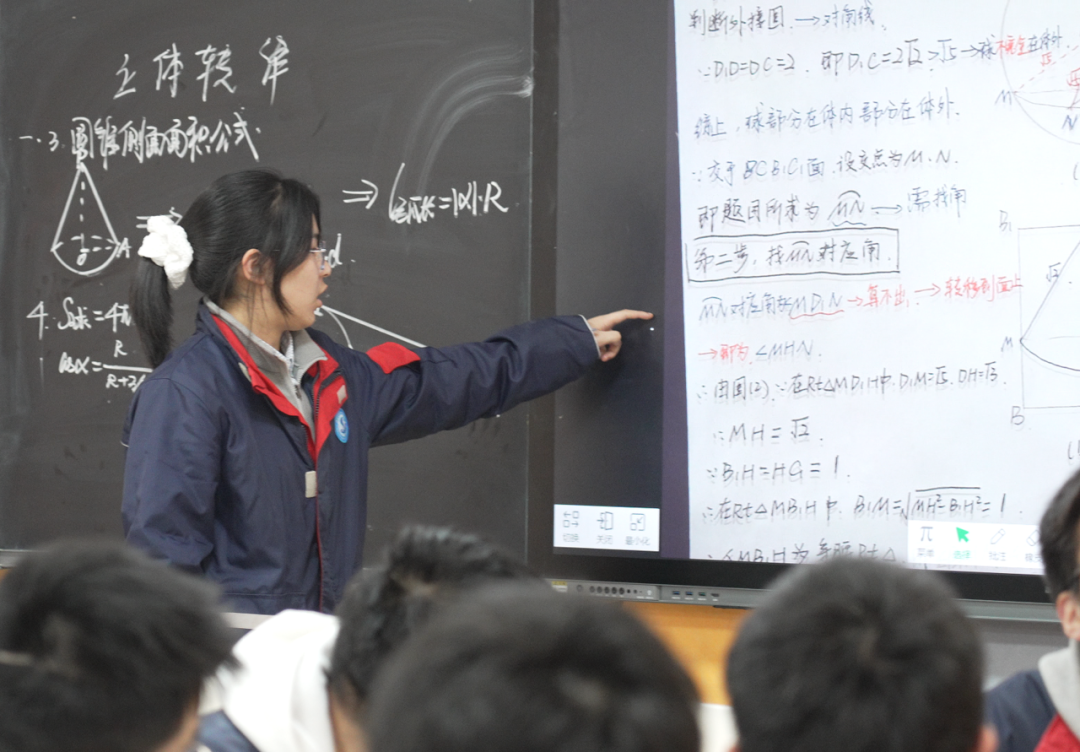 立体较单
一.3.圆锥侧面面积公式.
A
⇒ l弧长=|α|·R
d.
4. S球=4π
cosα=
R
判断外接圆.→对角线.
∵D₁D=DC=2. 即D₁C=2√2>√5→球不完全在体外
综上,球部分在体内部分在体外.
∵交于BCB₁C₁面.设交点为M、N.
即题目所求为MN→需找角
第二步,找MN对应角.
MN对应角为MD₁N→算不出.→转移到面上
→即为∠MHN.
∵由图(2).∵在Rt△MD₁H中.D₁M=√5. D₁H=√3.
∴MH=√2.
∵B₁H=HC₁=1.
∴在Rt△MB₁H中. B₁M=√MH²-B₁H²=1
∴△MB₁H为等腰Rt△
√5
M
N
B₁
√2
M
B
切换 关闭 最小化
菜单 选择 批注